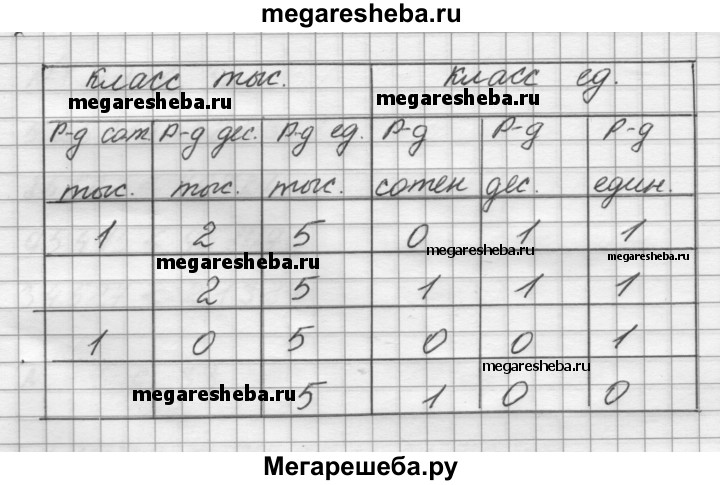 megaresheba.ru
класс тыс. класс ед.
megaresheba.ru megaresheba.ru
Р-д сот. Р-д дес. Р-д ед. Р-д Р-д Р-д
тыс. тыс. тыс. сотен дес. един.
1 2 5 0 1 1
megaresheba.ru megaresheba.ru megaresheba.ru
2 5 1 1 1
1 0 5 0 0 1
megaresheba.ru
megaresheba.ru 5 1 0 0
Мегарешеба.ру